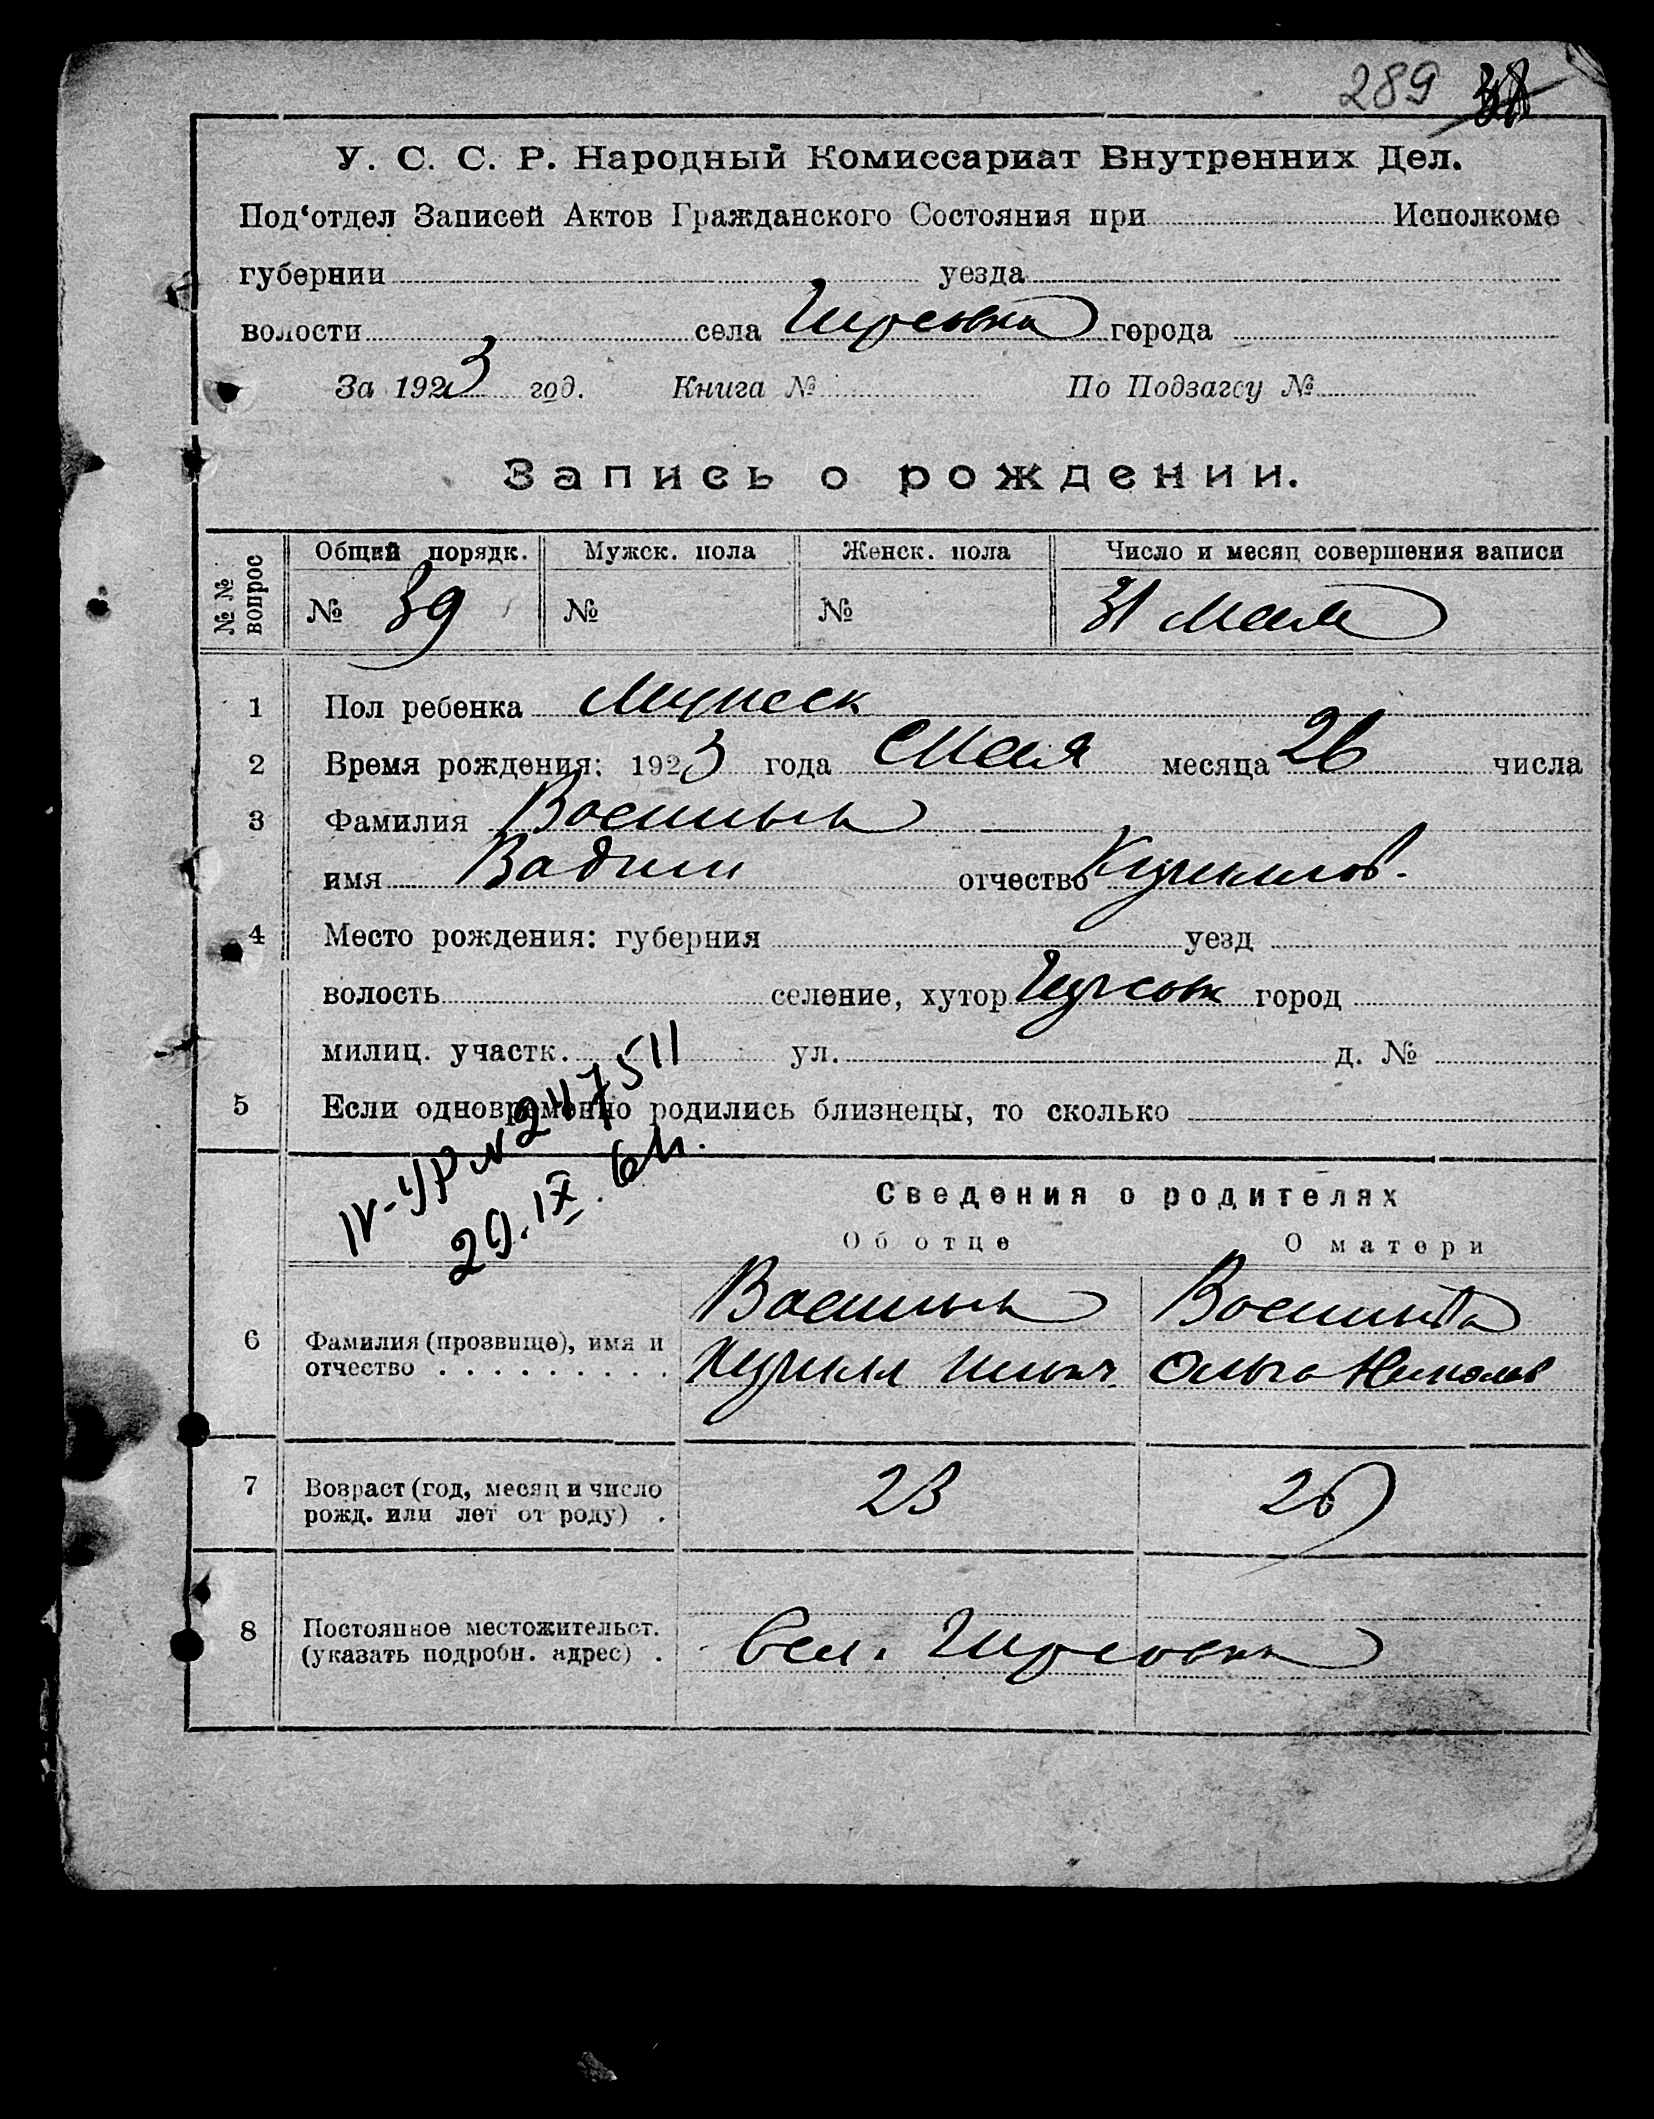 289
У. С. С. Р. Народный Комиссариат Внутренних Дел.
Под‘отдел Записей Актов Гражданского Состояния при Исполкоме
губернии уезда
волости села города
За 1923 год. Книга № По Подзагсу №
Запись о рождении.
№№ вопрос Общий порядк. Мужск. пола Женск. пола Число и месяц совершения записи
№ 39 № № 31 Мая
1 Пол ребенка Мужск
2 Время рождения: 1923 года Мая месяца 26 числа
3 Фамилия
имя Вадим отчество Кирилов.
4 Место рождения: губерния уезд
волость селение, хутор город
милиц. участк. ул. д. №
5 Если одновременно родились близнецы, то сколько
IV-УР № 247511
29.IX.64.
Сведения о родителях
Об отце О матери
6 Фамилия (прозвище), имя и
отчество . . . . . . . . . Кирилл Ильич Ольга Николаев
7 Возраст (год, месяц и число 23 26
рожд. или лет от роду) .
8 Постоянное местожительст.
(указать подробн. адрес) . Сел.